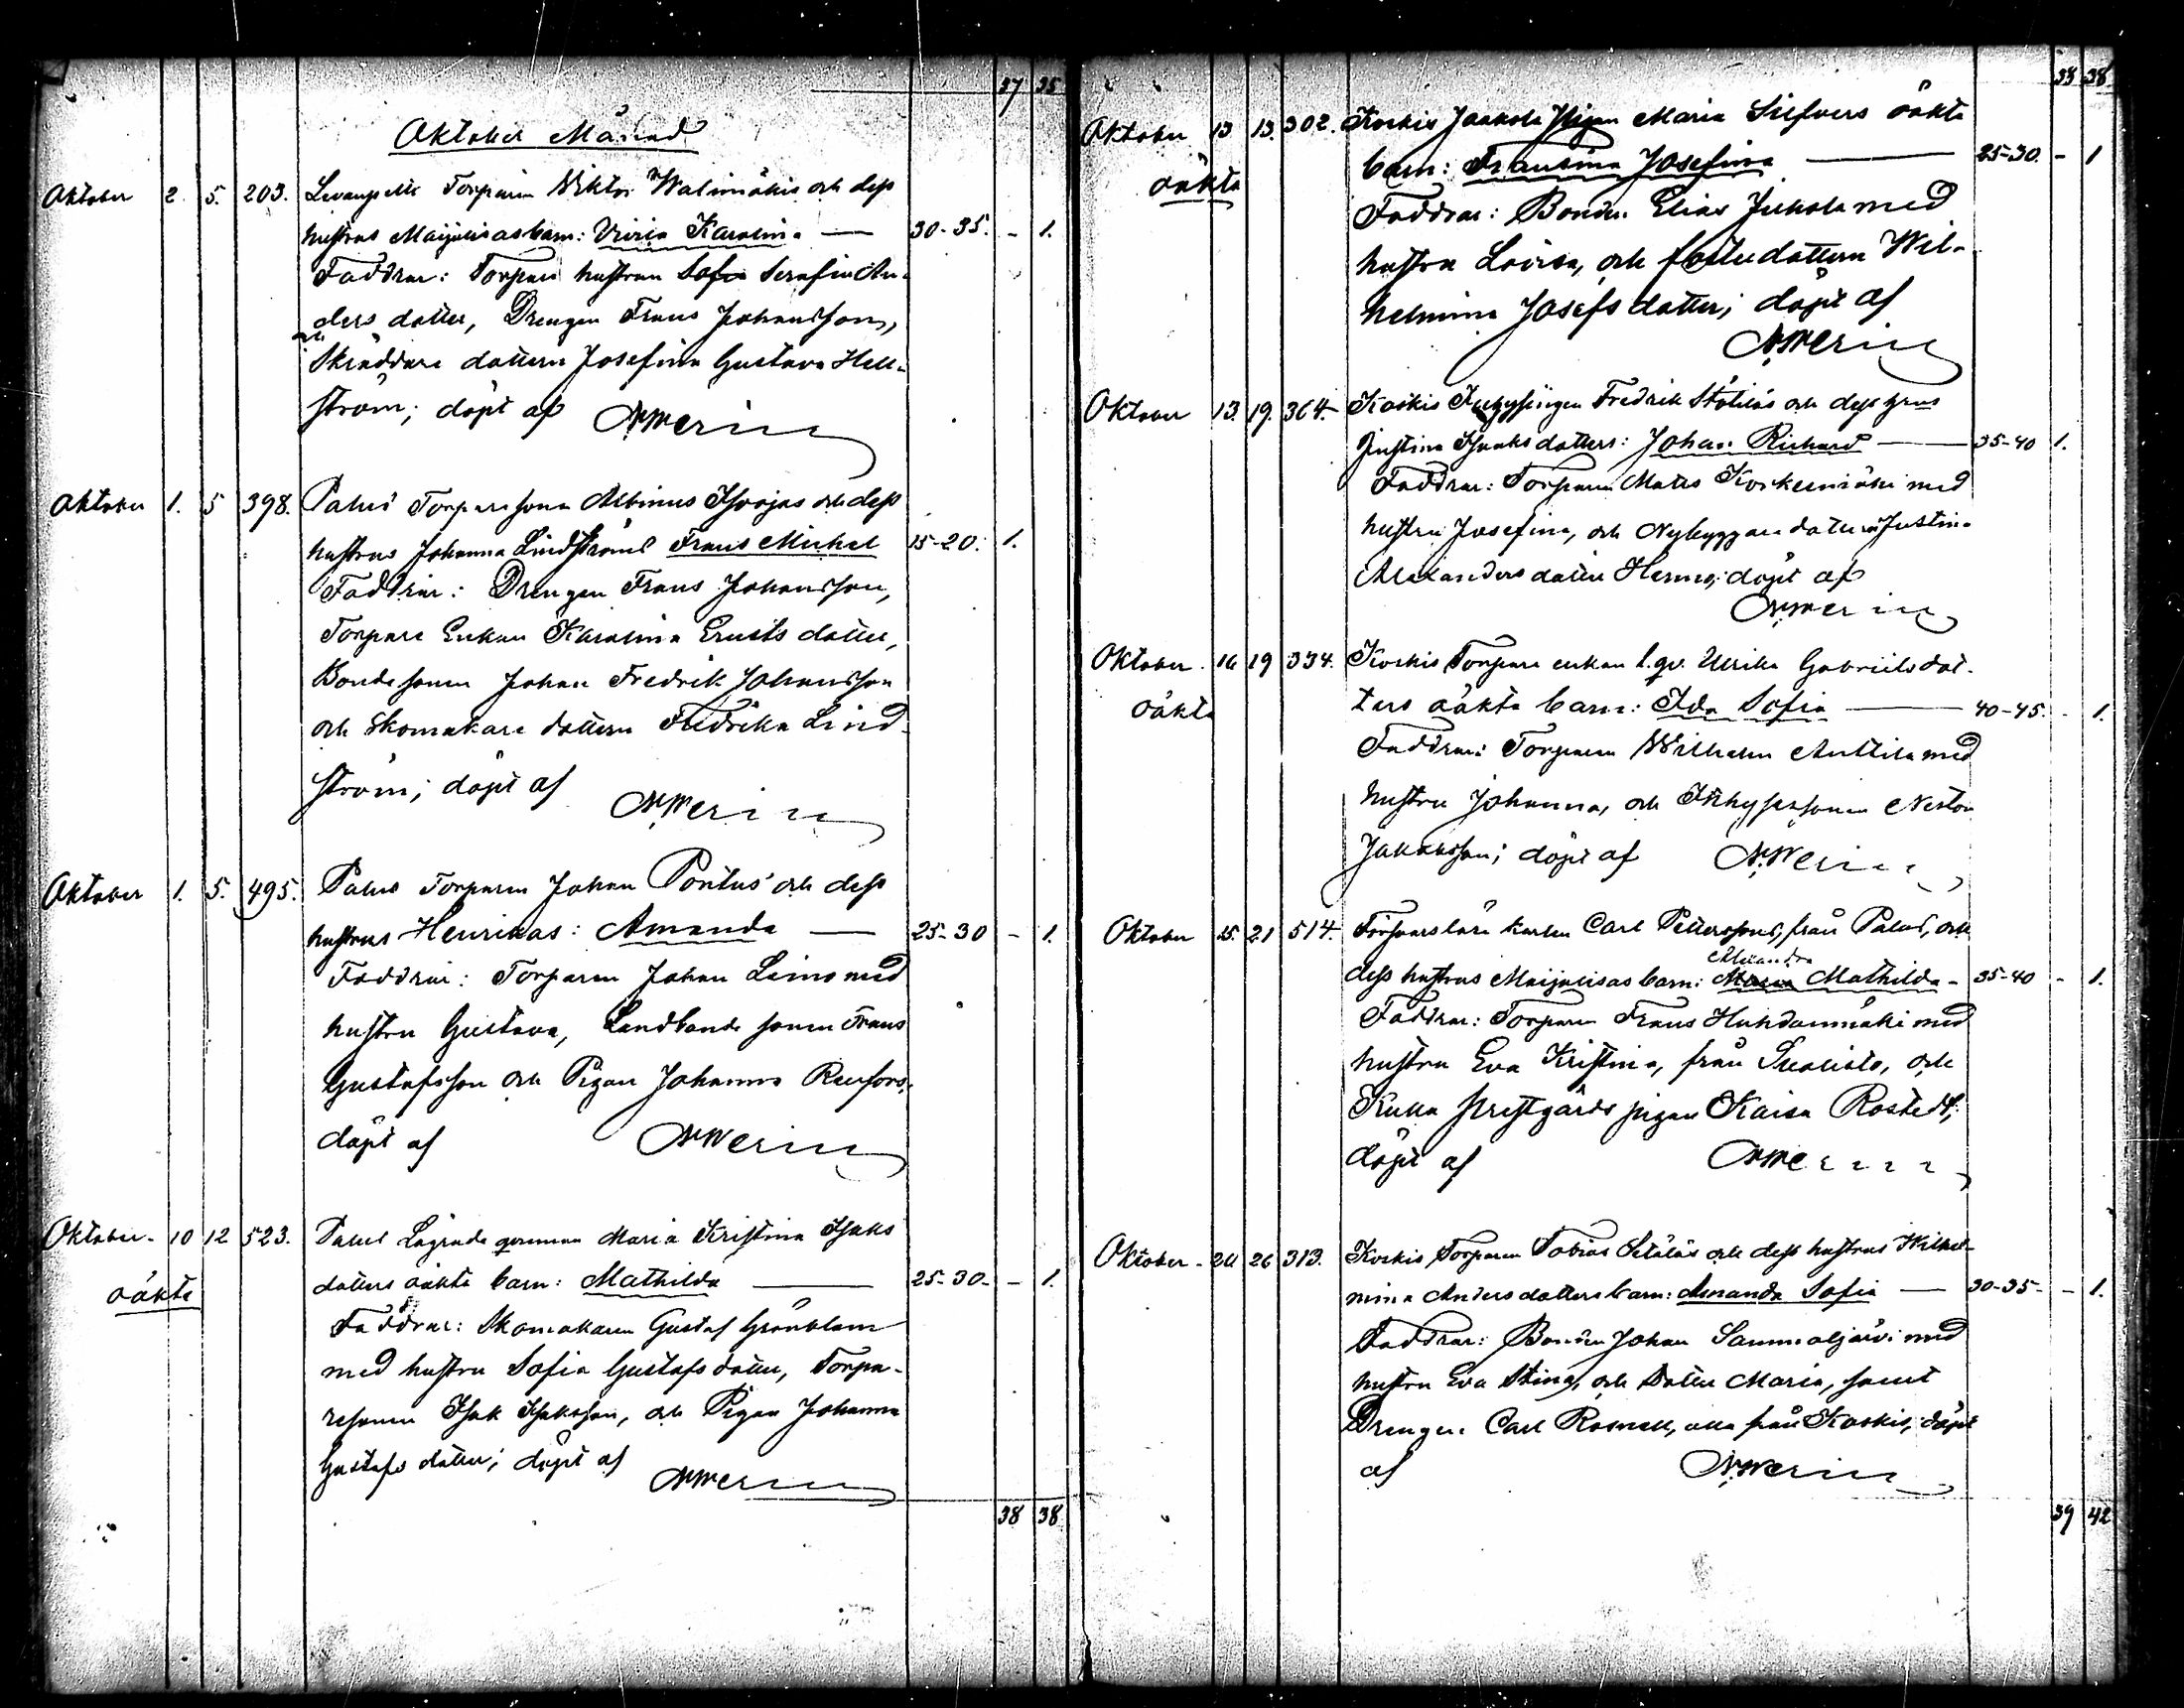 37 35
Oktober Månad
Oktober 2. 5. 203. Torparen Viktor Walimäkis och dess
hustrus Maijalisas barn: Karolina — 30-35. - 1.
Faddrar: Torpare hustrun Sofia Serafia An-
ders dotter, Drengen Frans Johansson,
och
Skräddare dottern Josefina Gustava Hell-
ström; döpt af N. Werin
Oktober 1. 5 398. Palus Torpare sonen Albinus och dess
hustrus Johanna Lindströms Frans Mickel 15-20. 1.
Faddrar: Drengen Frans Johansson,
Torpare Enkan Karolina Ernsts dotter,
Bondesonen Johan Fredrik Johansson
och Skomakare dottern Fredrika Lind-
ström; döpt af N. Werin
Oktober 1. 5. 495. Palus Torparen Johan Pontus' och dess
hustrus Henrikas: Amanda — 25-30 - 1.
Faddrar: Torparen Johan Leino med
hustru Gustava, Landbonde sonen Frans
Gustafsson och Pigan Johanna Renfors;
döpt af N Werin
Oktober - 10 12 523. Palus qvinnan Maria Kristina Isaks
dotters oäkta barn: Mathilda — 25-30- - 1.
oäkta
Faddrar: Skomakaren Gustaf Grönblom
med hustru Sofia Gustafs dotter, Torpa-
resonen Isak Isaksson, och Pigan Johanna
Gustafs dotter; döpt af N Werin
38 38
38 38
Oktober 13 13. 302. Koskis Jaakola Pigan Maria Silfvers oäkta
barn: Fransina Josefina — 25-30. - 1
oäkta
Faddrar: Bonden Elias Jukola med
hustru Lovisa, och fosterdottern Wil-
helmina Josefs dotter; döpt af
N Werin
Oktober 13. 19. 364. Koskis Inhysingen Fredrik och dess hustrus
Justina Isaksdotters: Johan Richard — 35-40 1.
Faddrar: Torparen Matts med
hustru Josefina, och Nybyggare dottern Justina
Alexanders dotter döpt af
N. Werin
Oktober - 16 19 334. Koskis Torpare enkan l. qv. Ulrika Gabriels dot-
ters oäkta barn: Ida Sofia — 40-45. - 1.
oäkta
Faddrar: Torparen Wilhelm Anttila med
hustru Johanna, och Inhyses sonen Nestor
Jakobsson; döpt af N. Werin
Oktober 15. 21 514. Försvarslöse karlen Carl Petterssons, från Palus, och
Alexandra
dess hustrus Maijalisas barn: Maria Mathilda - 35-40 - 1.
Faddrar: Torparen Frans Huhdanmäki med
hustru Eva Kristina, från Suolisto, och
Kulla prestgårds pigan Kaisa Rostedt;
döpt af N Werin
Oktober - 20 26 313. Koskis Torparen Tobias Setäläs och dess hustrus Wilhel-
mina Andersdotters barn: Amanda Sofia — 30-35- - 1.
Faddrar: Bonden Johan Sammaljärvi med
hustru Eva Stina, och Dotter Maria, samt
Drengen Carl Rosnell, alla från Koskis; döpt
af N. Werin
39 42